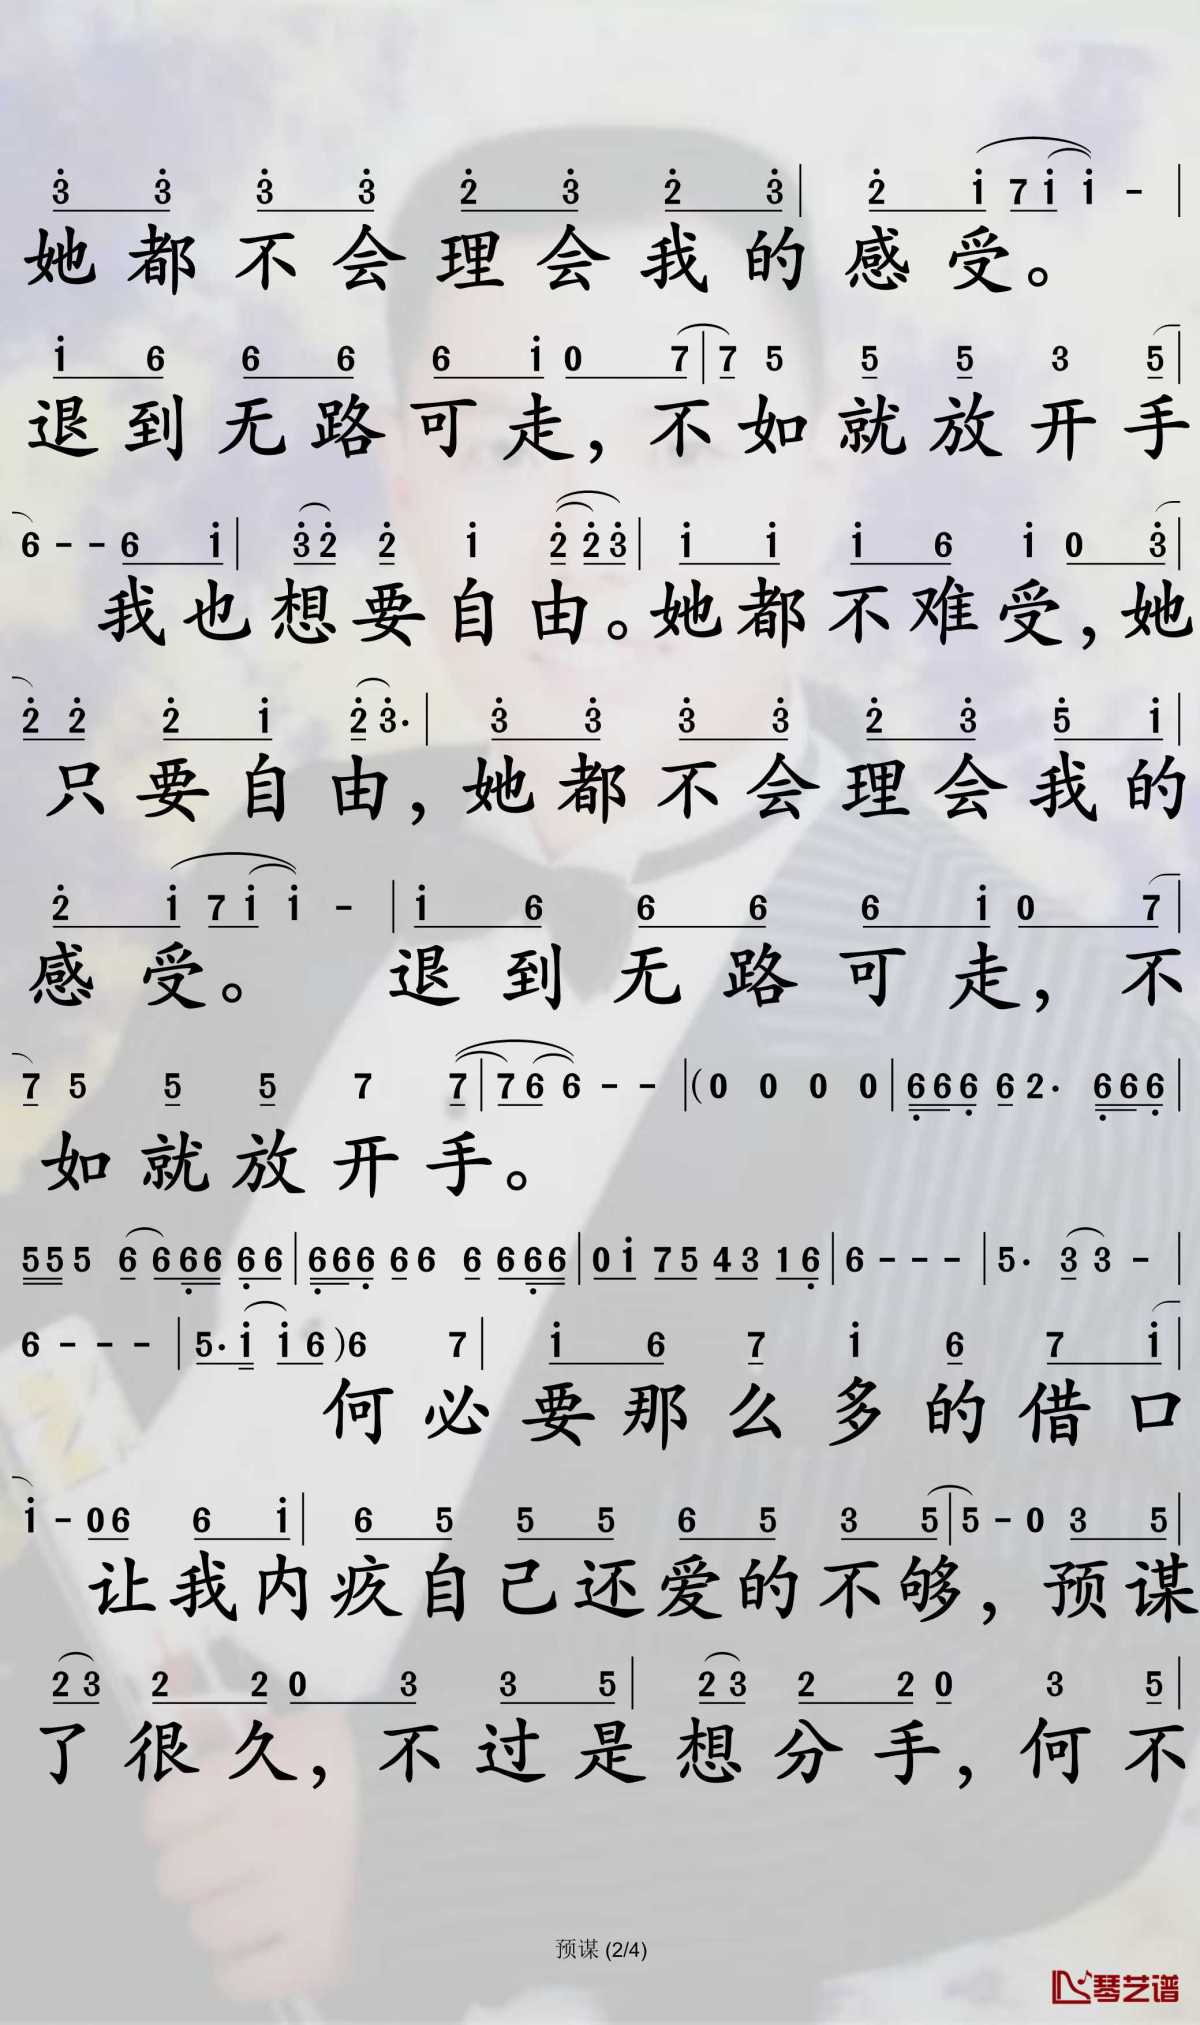 3̇ 3̇ 3̇ 3̇ 2̇ 3̇ 2̇ 3̇ | 2̇ 1̇ 7 1̇ 1̇ - |
她都不会理会我的感受。
1̇ 6 6 6 6 1̇ 0 7 | 7 5 5 5 3 5 |
退到无路可走，不如就放开手
6 - - 6 1̇ | 3̇ 2̇ 2̇ 1̇ 2̇ 2̇ 3̇ | 1̇ 1̇ 1̇ 6 1̇ 0 3̇ |
我也想要自由。她都不难受，她
2̇ 2̇ 2̇ 1̇ 2̇ 3̇· | 3̇ 3̇ 3̇ 3̇ 2̇ 3̇ 5̇ 1̇ |
只要自由，她都不会理会我的
2̇ 1̇ 7 1̇ 1̇ - | 1̇ 6 6 6 6 1̇ 0 7 |
感受。 退到无路可走，不
7 5 5 5 7 7 | 7 6 6 - - | (0 0 0 0 | 6̣ 6 6̣ 6 2· 6̣ 6 6̣ |
如就放开手。
5 5 5 6 6 6̣ 6 6̣ 6 | 6̣ 6 6̣ 6 6 6 6 6̣ 6 | 0 1̇ 7 5 4 3 1 6̣ | 6 - - - | 5· 3 3 - |
6 - - - | 5· 1̇ 1̇ 6 ) 6 7 | 1̇ 6 7 1̇ 6 7 1̇ |
何必要那么多的借口
1̇ - 0 6 6 1̇ | 6 5 5 5 6 5 3 5 | 5 - 0 3 5 |
让我内疚自己还爱的不够，预谋
2 3 2 2 0 3 3 5 | 2 3 2 2 0 3 5 |
了很久，不过是想分手，何不
预谋 (2/4)
琴艺谱